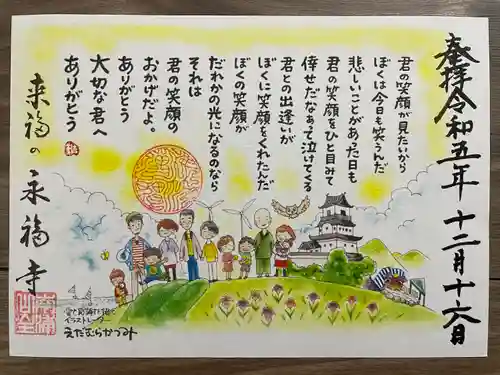 奉拝 令和五年 十二月十六日
君の笑顔が見たいから
ぼくは今日も笑うんだ
悲しいことがあった日も
君の笑顔をひと目みて
倖せだなぁって泣けてくる
君との出逢いが
ぼくに笑顔をくれたんだ
ぼくの笑顔が
だれかの光になるのなら
それは
君の笑顔の
おかげだよ。
ありがとう
大切な君へ
ありがとう
来福の 永福寺
イラストレーター
えだむらかつみ